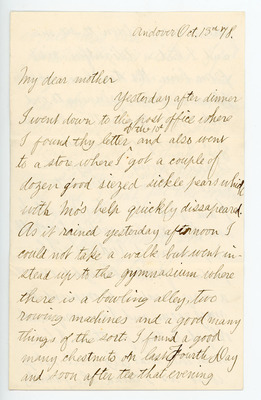 Andover Oct. 13th 78.
My dear mother
Yesterday after dinner
I went down to the post office where
of the 10th
I found thy letter, and also went
to a store where I got a couple of
dozen good siezed sickle pears which
with Mo's help quickly dissapeared.
As it rained yesterday afternoon I
could not take a walk but went in-
stead up to the gymnasium where
there is a bowling alley, two
rowing machines and a good many
things of the sort. I found a good
many chestnuts on last Fourth Day
and soon after tea that evening